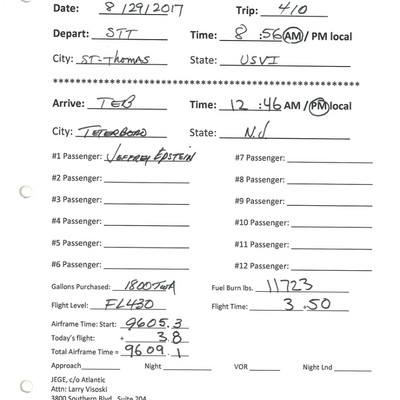 Date: 8/29/2017 Trip: 410
Depart: STT Time: 8 :56 AM / PM local
City: ST-Thomas State: USVI
************************************************************
Arrive: TEB Time: 12 :46 AM / PM local
City: TETERBORO State: NJ
#1 Passenger: JEFFREY EPSTEIN #7 Passenger:
#2 Passenger: #8 Passenger:
#3 Passenger: #9 Passenger:
#4 Passenger: #10 Passenger:
#5 Passenger: #11 Passenger:
#6 Passenger: #12 Passenger:
Gallons Purchased: 1800 Fuel Burn lbs. 11723
Flight Level: FL430 Flight Time: 3 .50
Airframe Time: Start: 9605.3
Today's flight: + 3.8
Total Airframe Time = 9609.1
Approach Night VOR Night Lnd
JEGE, c/o Atlantic
Attn: Larry Visoski
3800 Southern Blvd. Suite 204